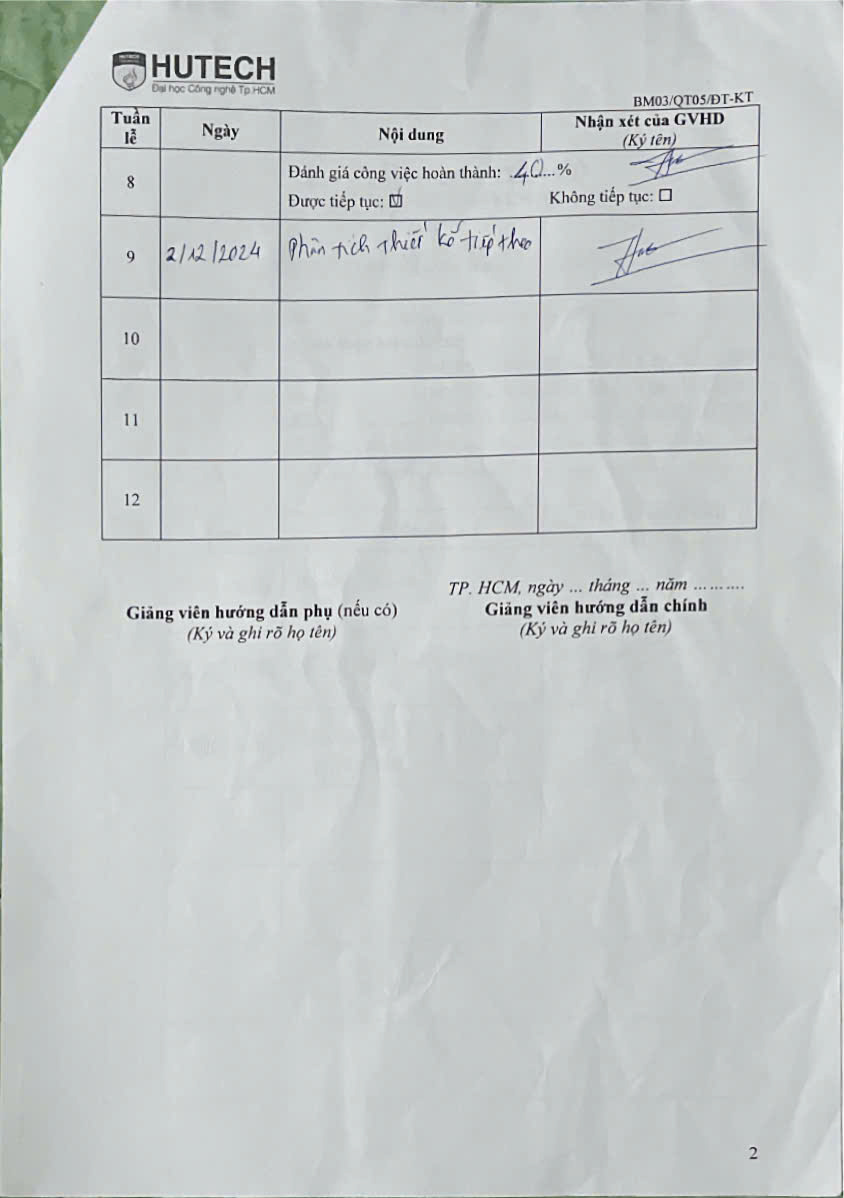 HUTECH
HUTECH
Đại học Công nghệ Tp.HCM
BM03/QT05/ĐT-KT
Tuần lễ Ngày Nội dung Nhận xét của GVHD
(Ký tên)
8 Đánh giá công việc hoàn thành: .40...%
Được tiếp tục: ☑ Không tiếp tục: ☐
9 2/12/2024 Phân tích thiết kế tiếp theo
10
11
12
TP. HCM, ngày ... tháng ... năm ..........
Giảng viên hướng dẫn phụ (nếu có) Giảng viên hướng dẫn chính
(Ký và ghi rõ họ tên) (Ký và ghi rõ họ tên)
2